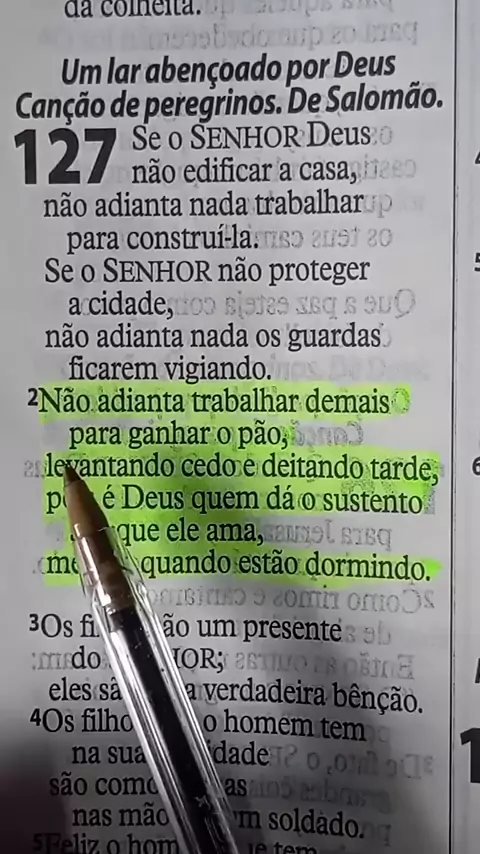 da colheita.
Um lar abençoado por Deus
Canção de peregrinos. De Salomão.
127 Se o SENHOR Deus
não edificar a casa,
não adianta nada trabalhar
para construí-la.
Se o SENHOR não proteger
a cidade,
não adianta nada os guardas
ficarem vigiando.
2Não adianta trabalhar demais
para ganhar o pão,
levantando cedo e deitando tarde,
é Deus quem dá o sustento
que ele ama,
quando estão dormindo.
3Os um presente
do
eles a verdadeira bênção.
4Os o homem tem
na sua
são
nas soldado.
5Feliz o tem